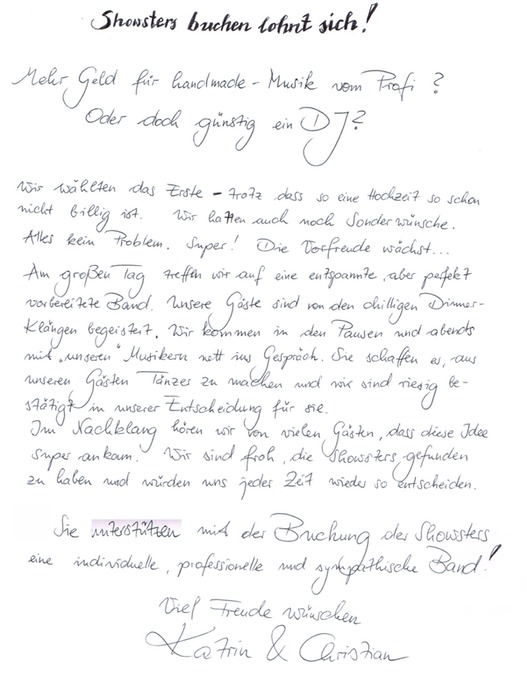 Showsters buchen lohnt sich!
Mehr Geld für handmade-Musik vom Profi?
Oder doch günstig ein DJ?
Wir wählten das Erste - trotz dass so eine Hochzeit so schon
nicht billig ist. Wir hatten auch noch Sonderwünsche.
Alles kein Problem. Super! Die Vorfreude wächst...
Am großen Tag treffen wir auf eine entspannte, aber perfekt
vorbereitete Band. Unsere Gäste sind von den chilligen Dinner-
Klängen begeistert. Wir kommen in den Pausen und abends
mit „unseren" Musikern nett ins Gespräch. Sie schaffen es, aus
unseren Gästen Tänzer zu machen und wir sind riesig be-
stätigt in unserer Entscheidung für sie.
Im Nachklang hören wir von vielen Gästen, dass diese Idee
super ankam. Wir sind froh, die Showsters gefunden
zu haben und würden uns jeder Zeit wieder so entscheiden.
Sie unterstützen mit der Buchung der Showsters
eine individuelle, professionelle und sympathische Band!
Viel Freude wünschen
Katrin & Christian